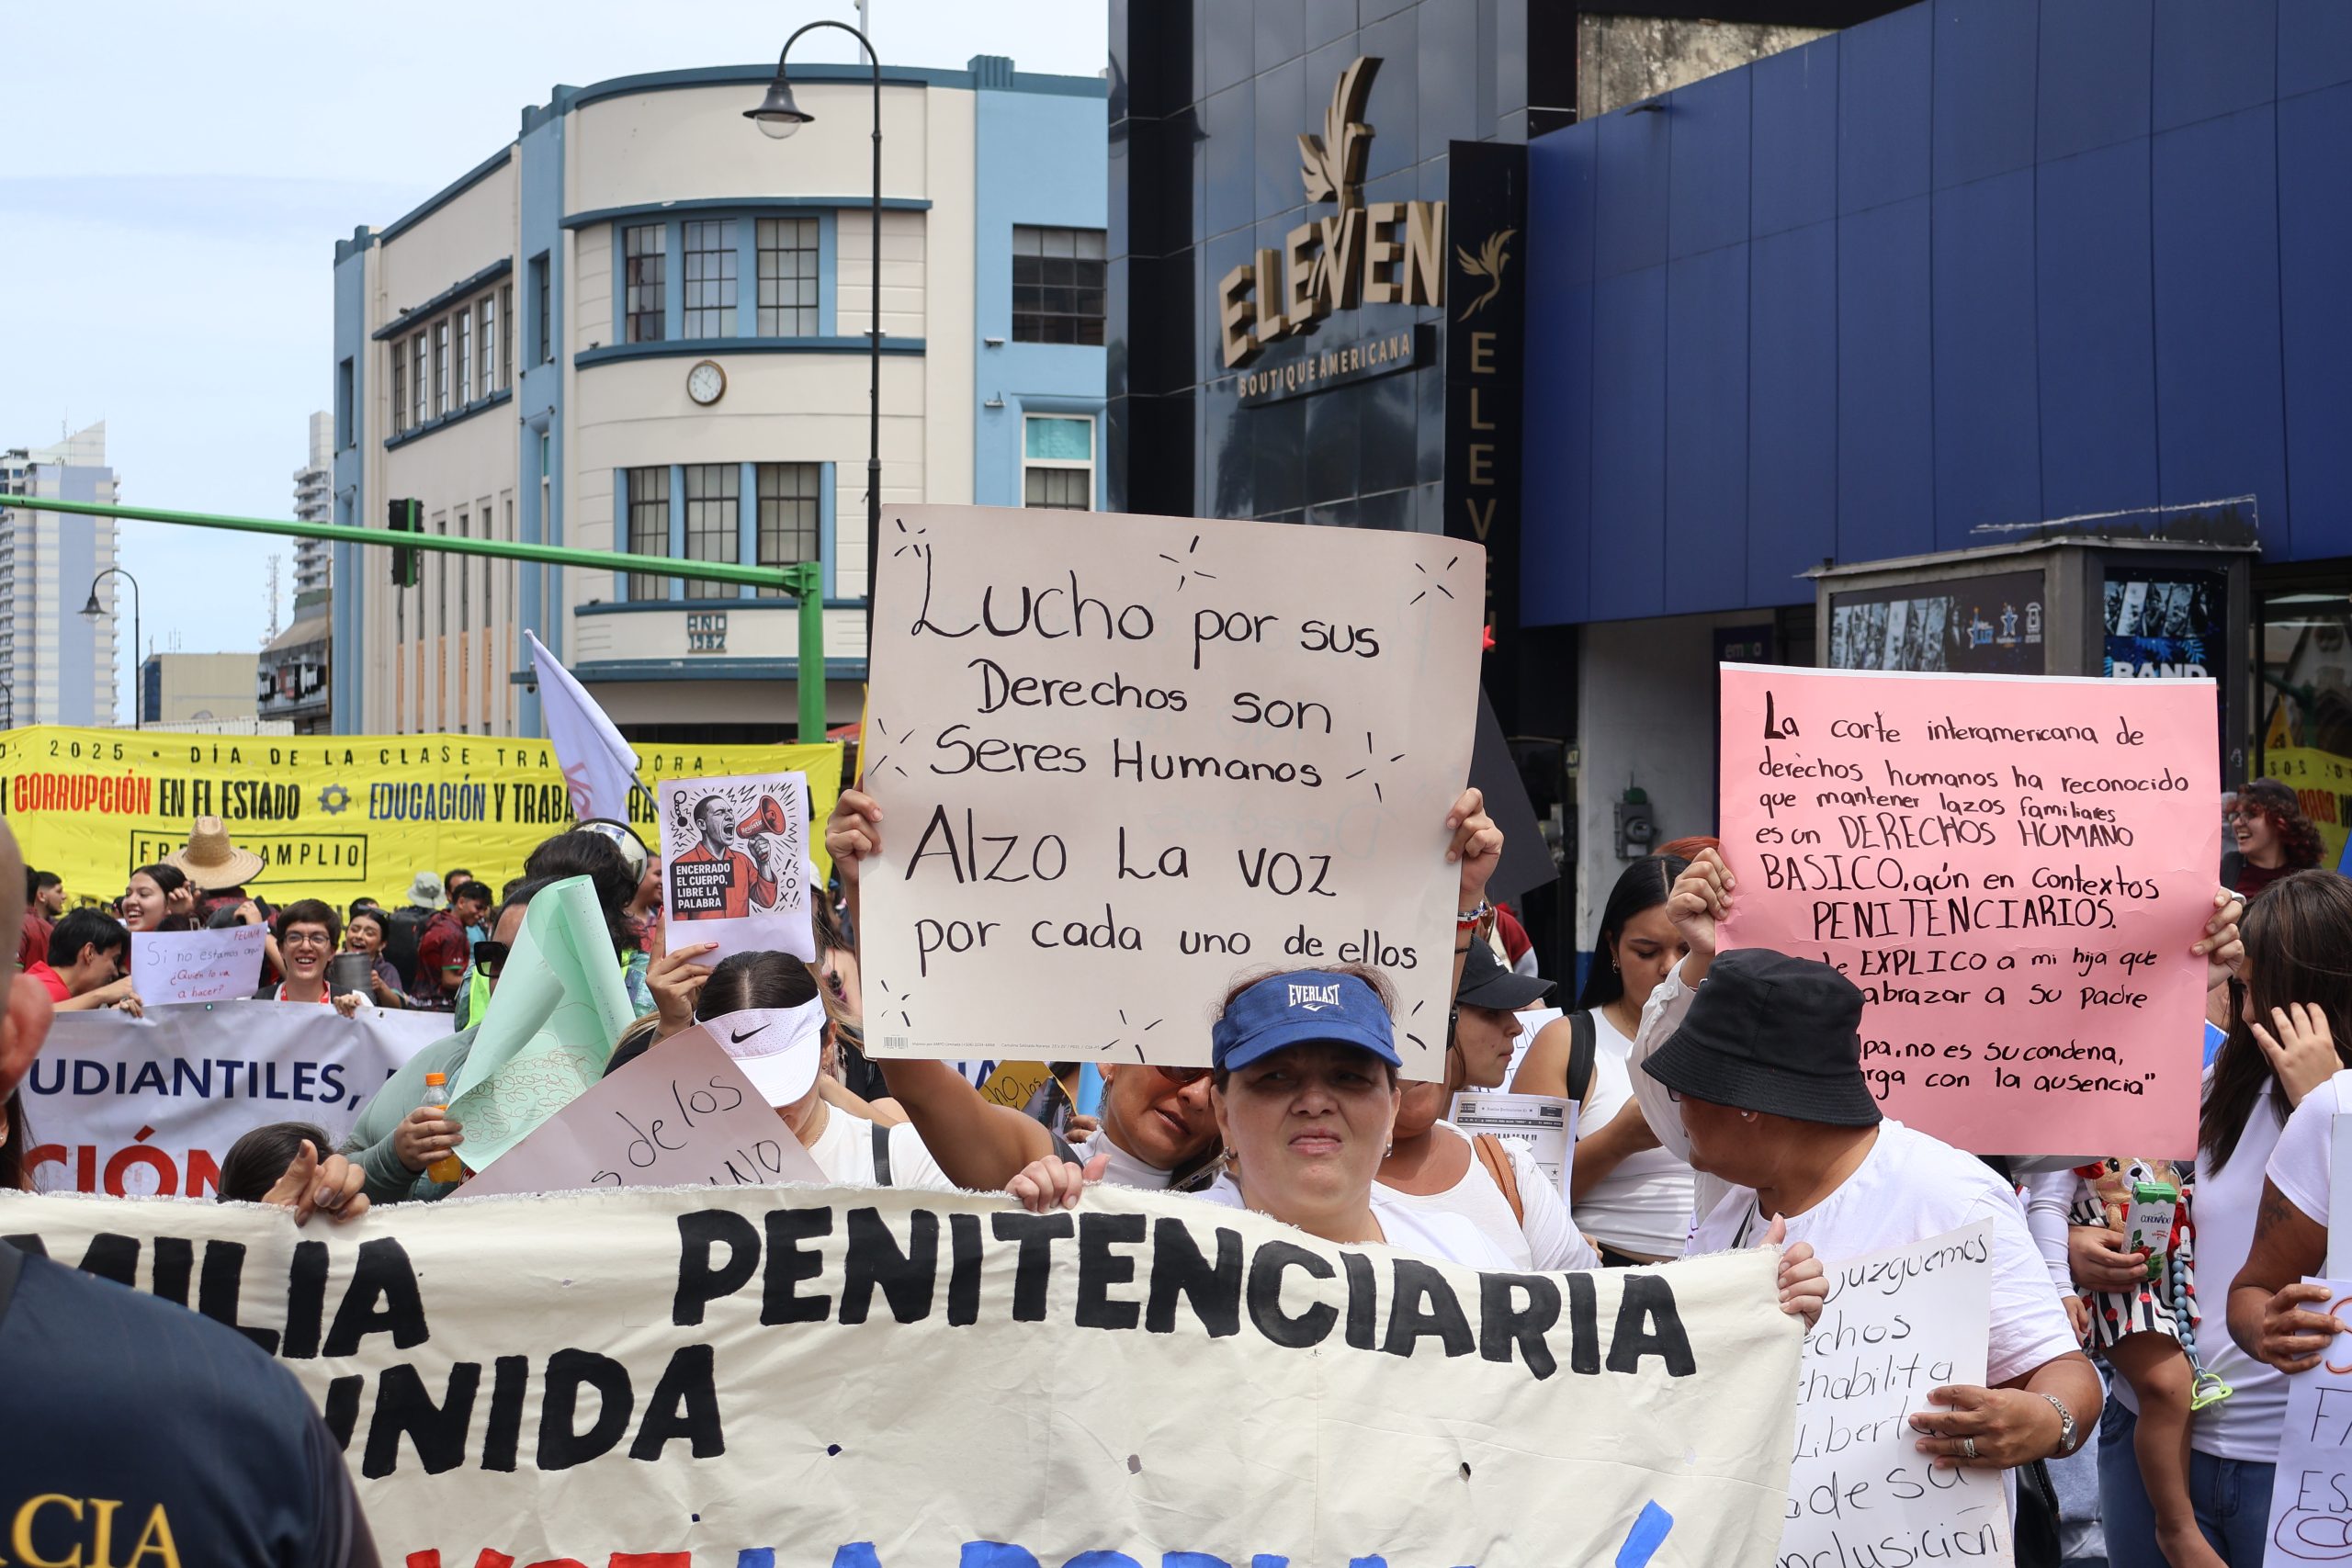 ELEVEN
BOUTIQUE AMERICANA
ELEVE
AÑO
1932
2025 • DÍA DE LA CLASE TRA DORA
CORRUPCIÓN EN EL ESTADO EDUCACIÓN Y TRABA
AMPLIO
FEUNA
Si no estamos aquí
¿Quién lo va
a hacer?
UDIANTILES,
CIÓN
ENCERRADO
EL CUERPO,
LIBRE LA
PALABRA
Lucho por sus
Derechos son
Seres Humanos
Alzo La voz
por cada uno de ellos
EVERLAST
La corte interamericana de
derechos humanos ha reconocido
que mantener lazos familiares
es un DERECHOS HUMANO
BASICO, aún en contextos
PENITENCIARIOS.
le EXPLICO a mi hija que
abrazar a su padre
lpa, no es su condena,
rga con la ausencia"
BAND
s de los
NO
MILIA PENITENCIARIA
UNIDA
juzguemos
echos
ehabilita
Libert
de su
nclusición
CIA